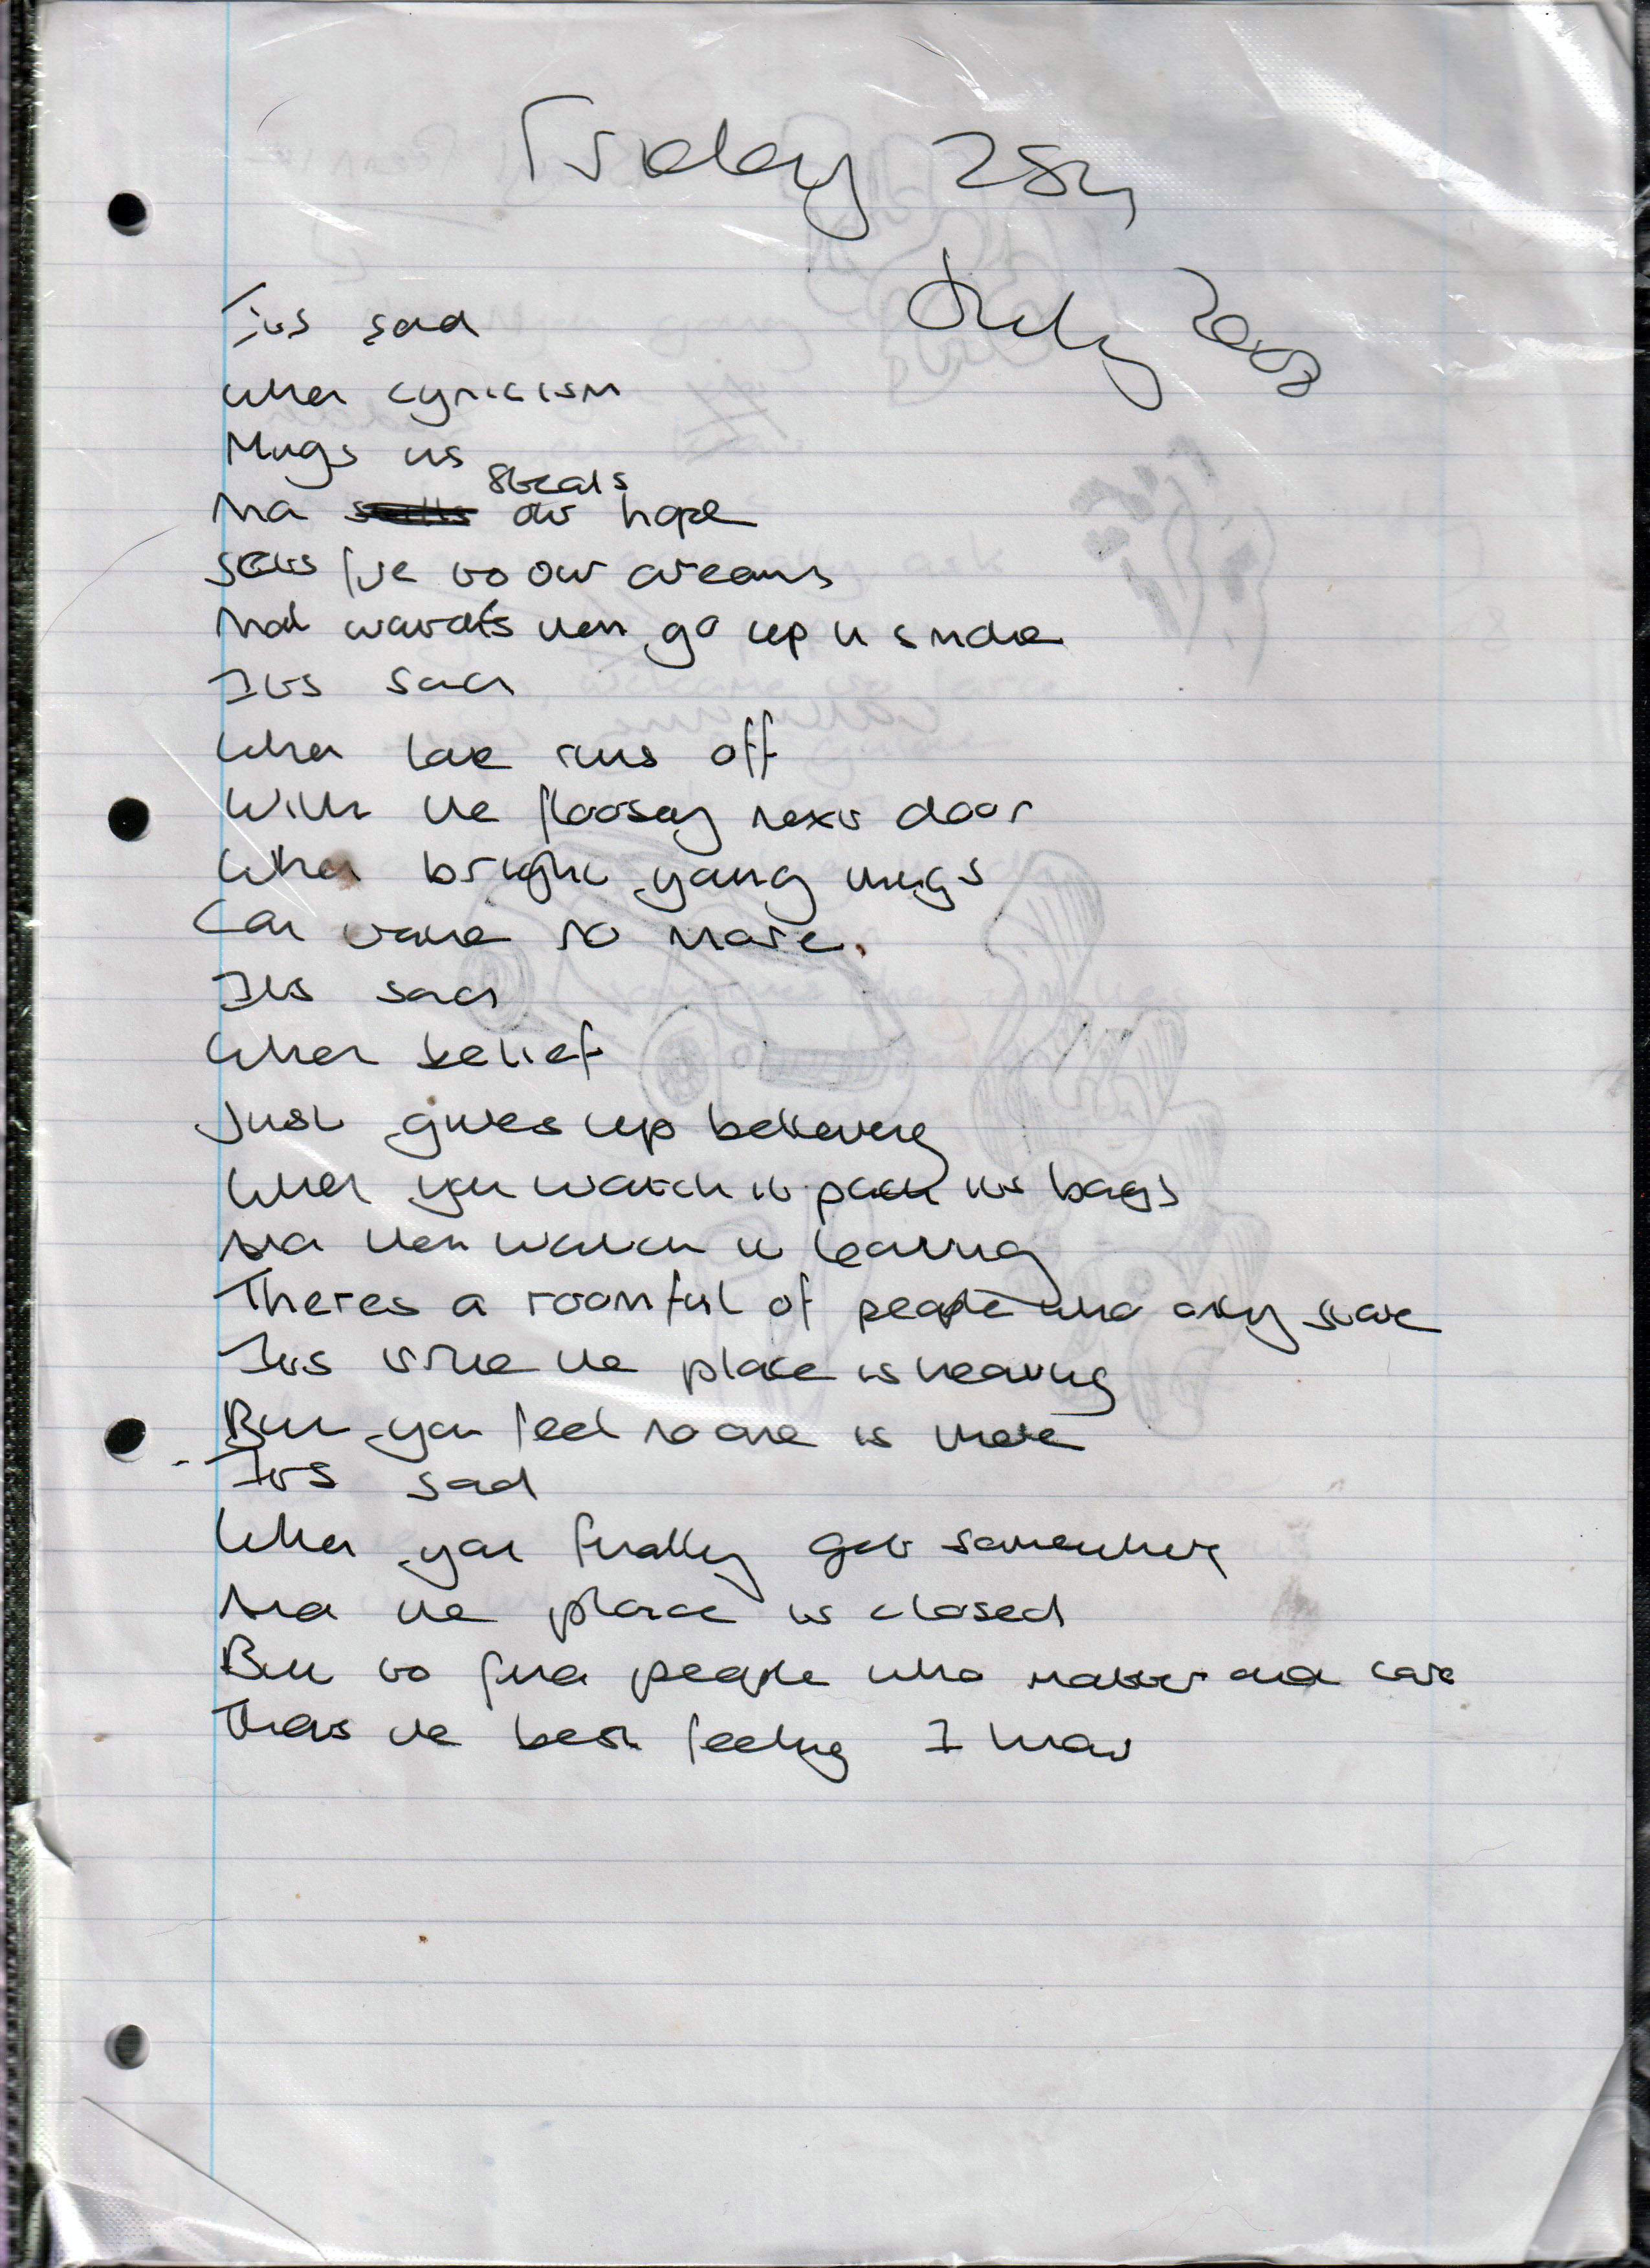 Friday 25th
July 2003
Its sad
When cynicism
Mugs us
And steals our hope
Sets fire to our dreams
And watches them go up in smoke
Its sad
When love runs off
With the floosey next door
When bright young things
Can take no more.
Its sad
When belief
Just gives up believing
When you watch it pack its bags
And then watch it leaving
Theres a roomful of people who only stare
Its like the place is heaving
But you feel no one is there
Its sad
When you finally get somewhere
And the place is closed
But to find people who matter and care
Thats the best feeling I know